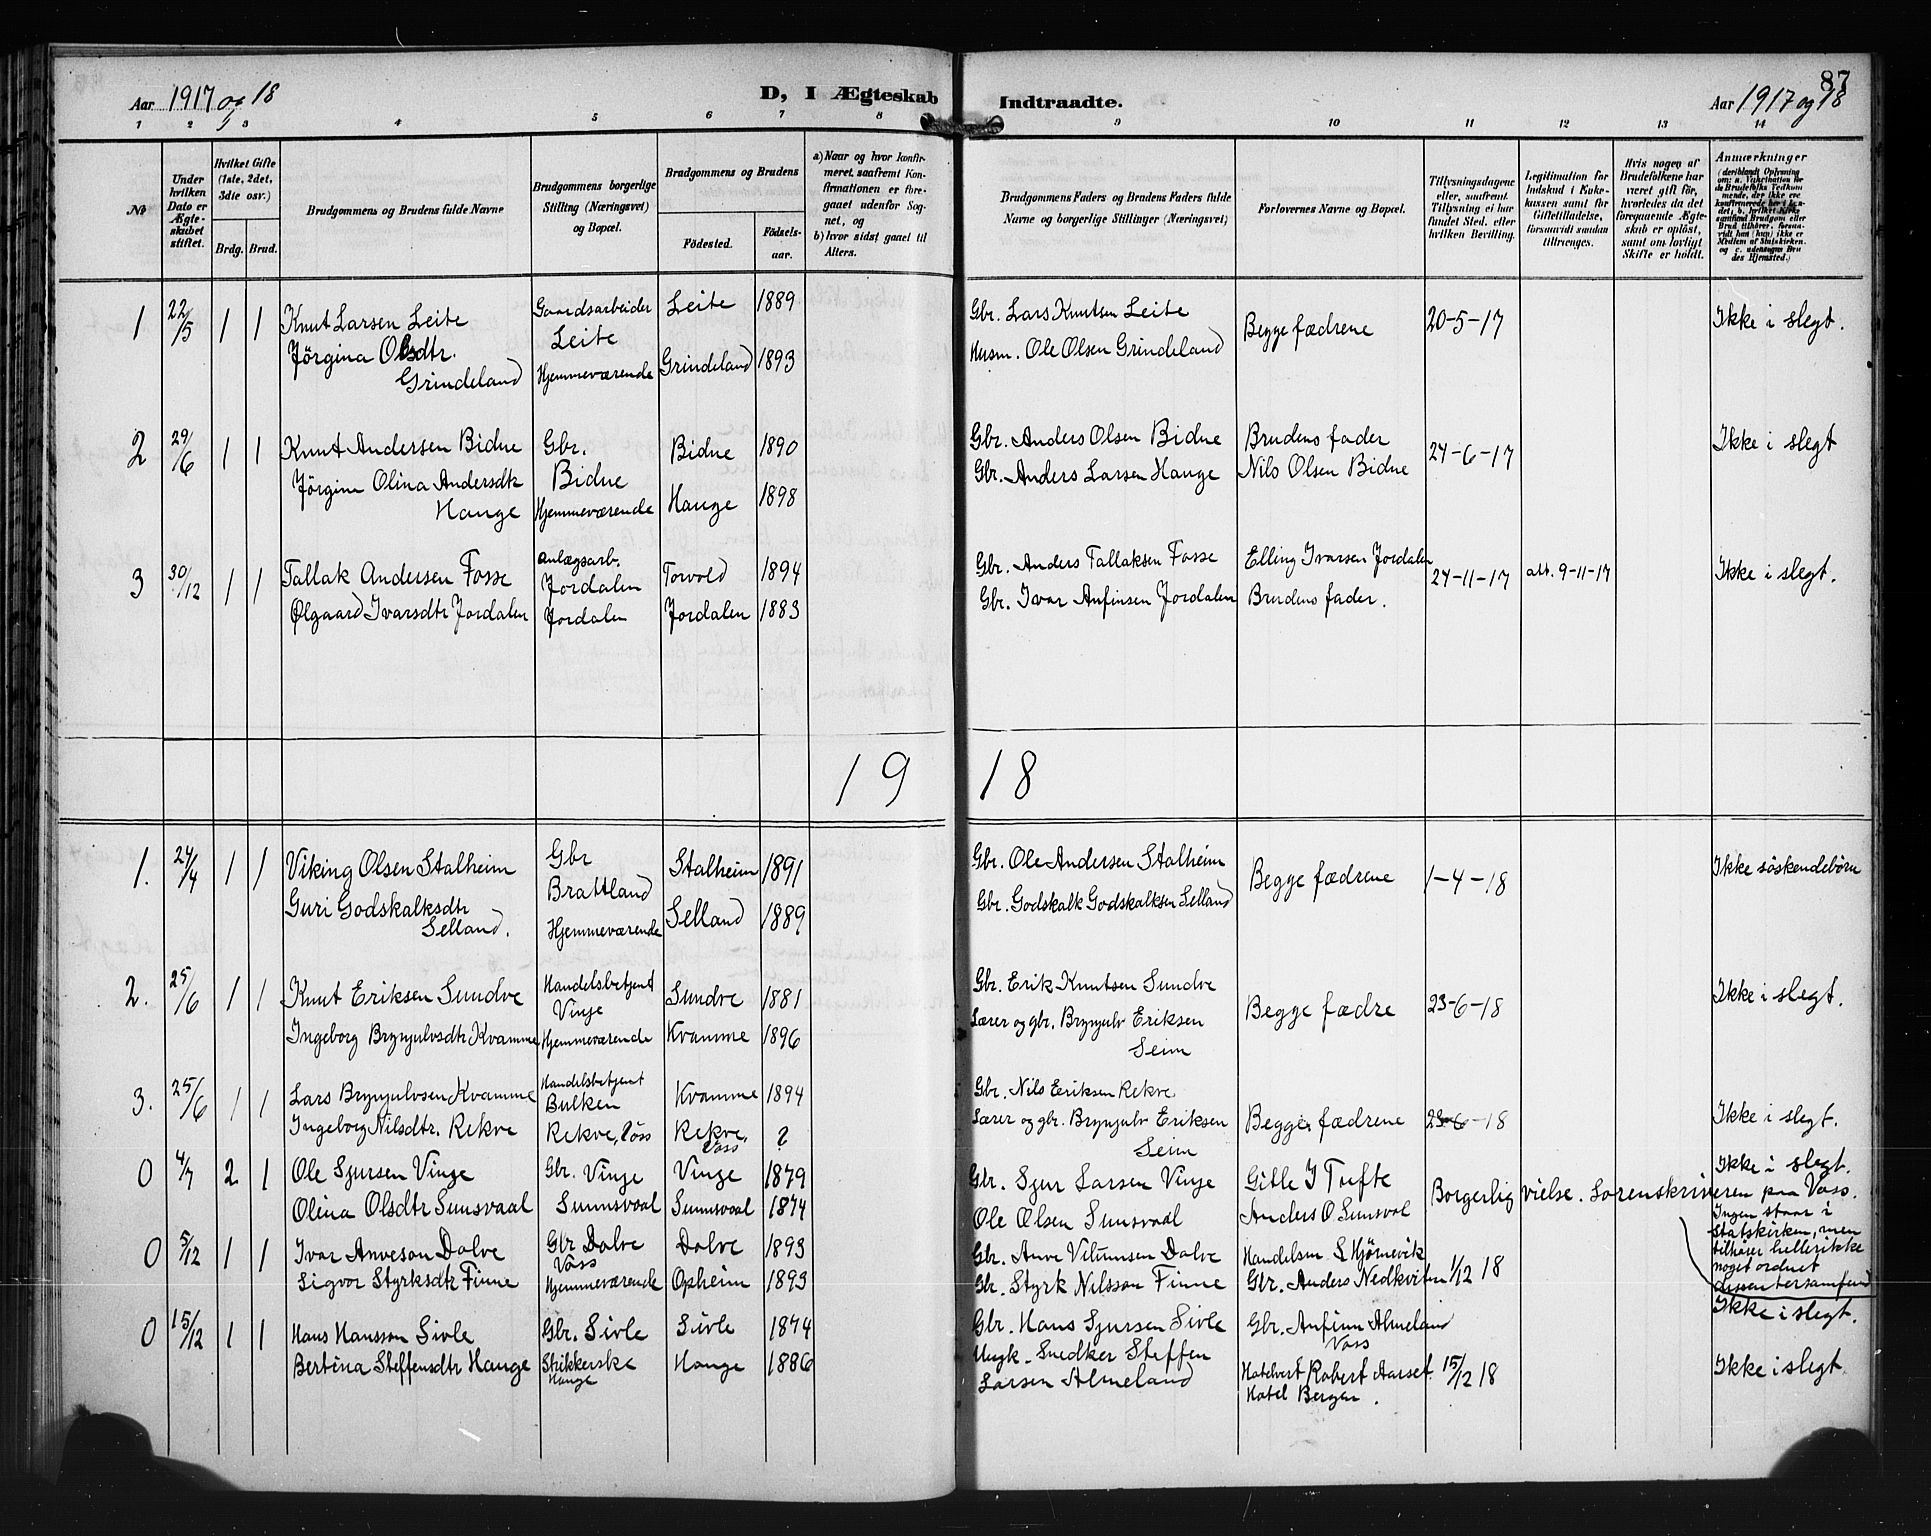 87
Aar 1917 og 18
D, I Ægteskab Indtraadte.
Aar 1917 og 18
1 2 3 4 5 6 7 8 9 10 11 12 13 14
No
Under hvilken Dato er Ægteskabet stiftet.
Hvilket Gifte (1ste, 2det, 3die osv.)
Brdg. Brud.
Brudgommens og Brudens fulde Navne
Brudgommens borgerlige Stilling (Næringsvei) og Bopæl.
Brudgommens og Brudens
Födested.
Födselsaar.
a) Naar og hvor konfirmeret, saafremt Konfirmationen er foregaaet udenfor Sognet, og
b) hvor sidst gaaet til Alters.
Brudgommens Faders og Brudens Faders fulde Navne og borgerlige Stillinger (Næringsvei)
Forlovernes Navne og Bopæl.
Tillysningsdagene eller, saafremt Tillysning ei har fundet Sted, efter hvilken Bevilling.
Legitimation for Indskud i Enkekassen samt for Giftetilladelse, forsaavidt saadan tiltrænges.
Hvis nogen af Brudefolkene har været gift för, hvorledes da det foregaaende Ægteskab er oplöst, samt om lovligt Skifte er holdt.
Anmærkninger
1 22/5 1 1 Knut Larsen Leite Gaardsarbeider Leite Leite 1889 Gbr. Lars Knutsen Leite Begge fædrene 20-5-17 Ikke i slegt.
Jörgina Olsdtr. Grindeland Hjemmeværende Grindeland 1893 Husm. Ole Olsen Grindeland
2 29/6 1 1 Knut Andersen Bidne Gbr. Bidne Bidne 1890 Gbr. Anders Olsen Bidne Brudens fader 24-6-17 Ikke i slegt
Jörgine Olina Andersdtr Hauge Hjemmeværende Hauge 1898 Gbr. Anders Larsen Hauge Nils Olsen Bidne
3 30/12 1 1 Tallak Andersen Fosse Anlægsarb. Jordalen Torvold 1894 Gbr. Anders Tallaksen Fosse Elling Ivarsen Jordalen 24-11-17 att. 9-11-17 Ikke i slegt.
Ølgaard Ivarsdtr Jordalen Jordalen Jordalen 1883 Gbr. Ivar Anfinsen Jordalen Brudens fader.
19 18
1. 24/4 1 1 Viking Olsen Stalheim Gbr Brattland Stalheim 1891 Gbr. Ole Andersen Stalheim Begge fædrene 1-4-18 Ikke söskendebörn
Guri Godskalksdtr Selland. Hjemmeværende Selland 1889 Gbr. Godskalk Godskalksen Selland
2. 25/6 1 1 Knut Eriksen Sundve Handelsbetjent Vinje Sundve 1881 Gbr. Erik Knutsen Sundve Begge fædre 23-6-18 Ikke i slegt.
Ingeborg Brynjulvsdtr Kvamme Hjemmeværende Kvamme 1896 Lærer og gbr. Brynjulv Eriksen Seim
3. 25/6 1 1 Lars Brynjulvsen Kvamme Handelsbetjent Bulken Kvamme 1894 Gbr. Nils Eriksen Rekve Begge fædrene 23-6-18 Ikke i slegt.
Ingeborg Nilsdtr. Rekve Rekve, Voss Rekve, Voss ? Lærer og gbr. Brynjulv Eriksen Seim
0 4/7 2 1 Ole Sjursen Vinje Gbr. Vinje Vinje 1879 Gbr. Sjur Larsen Vinje Gitle J Tufte Borgerlig vielse. Sorenskriveren paa Voss. Ikke i slegt.
Olina Olsdtr Sunsvaal Sunnsvaal Sunnsvaal 1874 Ole Olsen Sunsvaal Anders O Sunsval
Ingen staar i Statskirken, men tilhører heller ikke noget ordnet dissentersamfund
0 5/12 1 1 Ivar Anveson Dolve Gbr Dolve Voss Dolve 1893 Gbr. Anve Dolve Handelsm S Hjørnevik 1/12 18 Ikke i slegt.
Sigvor Styrksdtr Finne Hjemmeværende Opheim 1893 Gbr. Styrk Nilsson Finne Gbr. Anders Nedkvitne
0 15/12 1 1 Hans Hansson Sivle Gbr. Sivle Sivle 1874 Gbr. Hans Sjursen Sivle Gbr. Anfinn Almeland Voss 15/12 18 Ikke i slegt.
Bertina Steffensdtr Hauge Strikkerske Hauge Hauge 1886 Ungk. Snedker Steffen Larsen Almeland Hotelvert Robert Aarset Hotel Bergen.